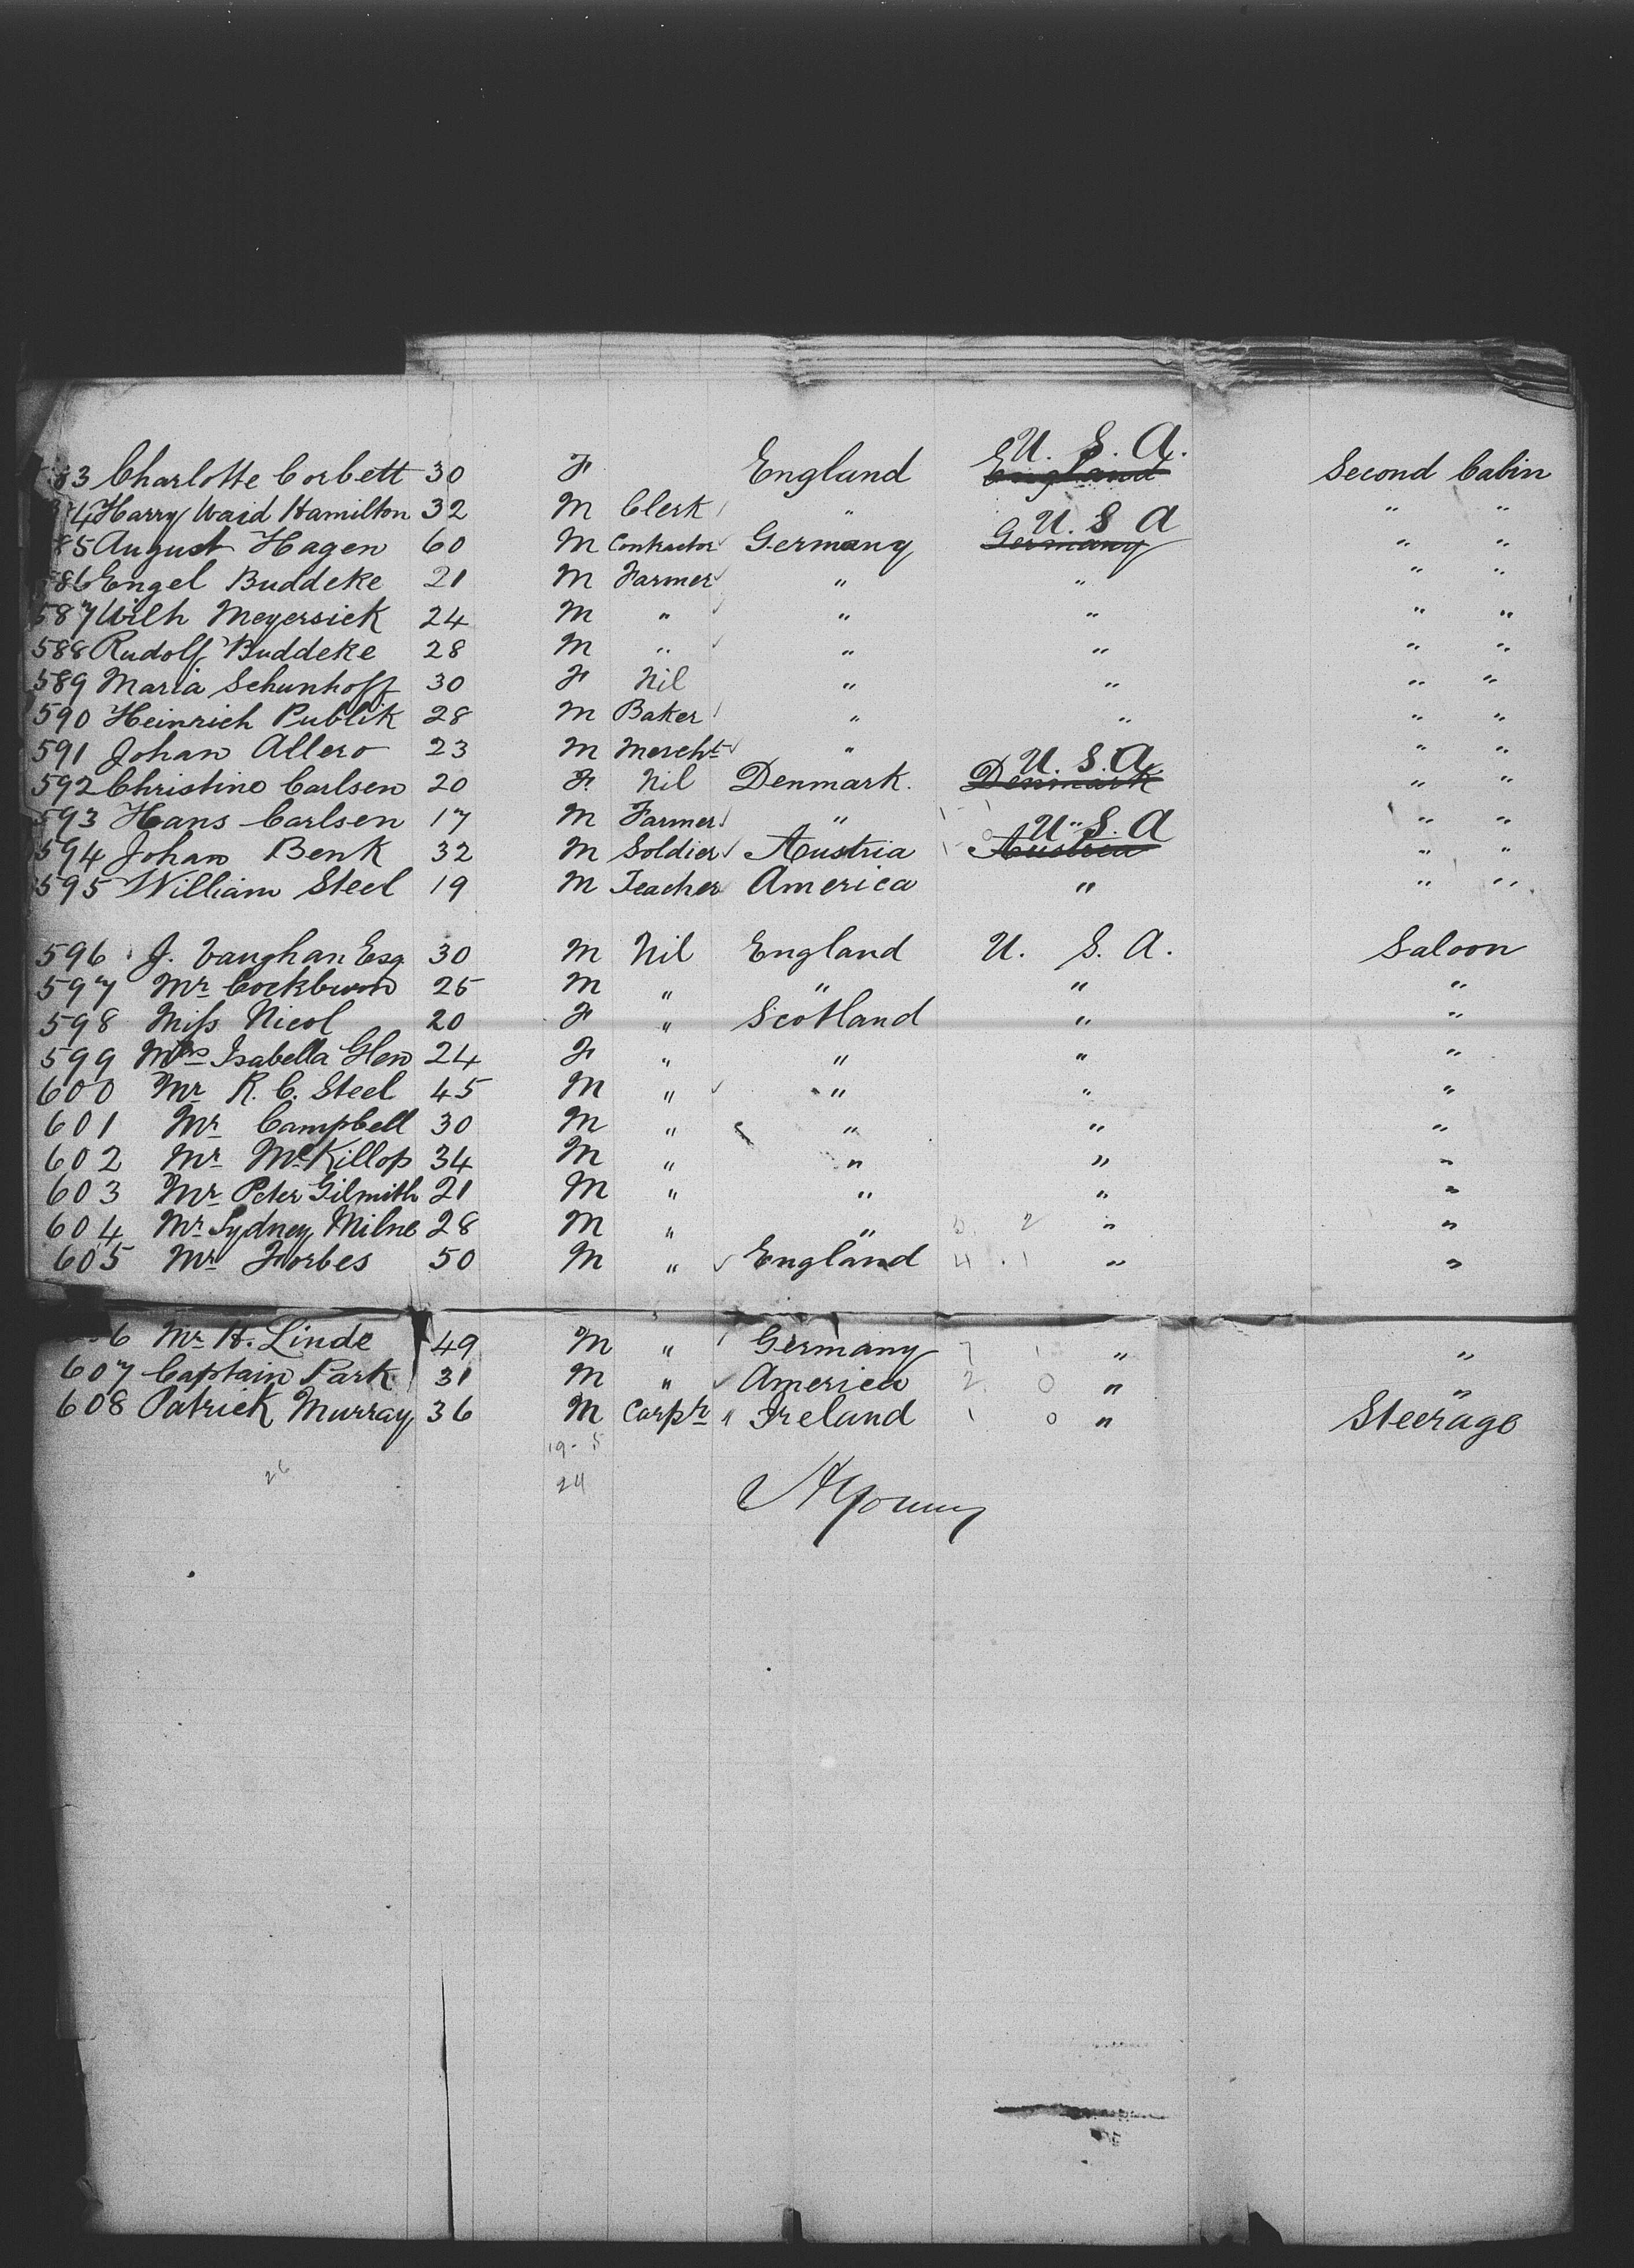 83 Charlotte Corbett 30 F England U. S. A. ~~England~~ Second Cabin
4 Harry Waid Hamilton 32 M Clerk " " "
85 August Hagen 60 M Contractor Germany U. S A ~~Germany~~ " "
586 Engel Buddeke 21 M Farmer " " " "
587 Wilh Meyersick 24 M " " " " "
588 Rudolf Buddeke 28 M " " " " "
589 Maria Schunhoff 30 F Nil " " " "
590 Heinrich Publik 28 M Baker " " " "
591 Johan Allero 23 M Mercht " " "
592 Christine Carlsen 20 F. Nil Denmark. U. S. A. ~~Denmark~~ " "
593 Hans Carlsen 17 M Farmer " " " "
594 Johan Benk 32 M Soldier Austria U. S. A ~~Austria~~ " "
595 William Steel 19 M Teacher America " " "
596 J. Vaughan Esq 30 M Nil England U. S. A. Saloon
597 Mr Cockburn 25 M " " " "
598 Miss Nicol 20 F " Scotland " "
599 Isabella Glen 24 F " " " "
600 Mr R. C. Steel 45 M " " " "
601 Mr Campbell 30 M " " " "
602 Mr McKillop 34 M " " " "
603 Mr Peter Gilmith 21 M " " " "
604 Mr Sydney Milne 28 M " " 2 " "
605 Mr Forbes 50 M " England 4 . 1 " "
6 Mr H. Linde 49 M " Germany 7 1 " "
607 Captain Park 31 M " America 2. 0 " "
608 Patrick Murray 36 M Carpr Ireland 1 0 " Steerage
19 - 5
26 24
A Young